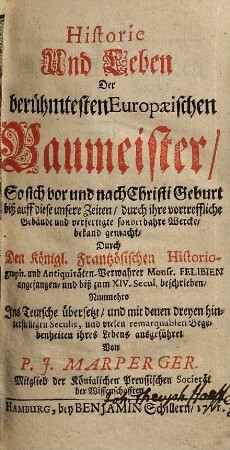 Historie
Und Leben
Der
berühmtesten Europæischen
Baumeister/
So sich vor und nach Christi Geburt
biß auff diese unsere Zeiten/ durch ihre vortreffliche
Gebäude und verfertigte sonderbahre Wercke/
bekand gemacht/
Durch
Den Königl. Frantzösischen Historio-
graph. und Antiquitäten-Verwahrer Monsr. FELIBIEN
angefangen/ und biß zum XIV. Secul. beschrieben/
Nunmehro
Ins Teutsche übersetzt/ und mit denen dreyen hin-
terstelligen Seculis, und vielen remarquablen Bege-
benheiten ihres Lebens ausgeführet
Von
P. J. MARPERGER.
Mitglied der Königlichen Preussischen Societät
der Wissenschafften.
HAMBURG, bey BENJAMIN Schillern/ 1711.